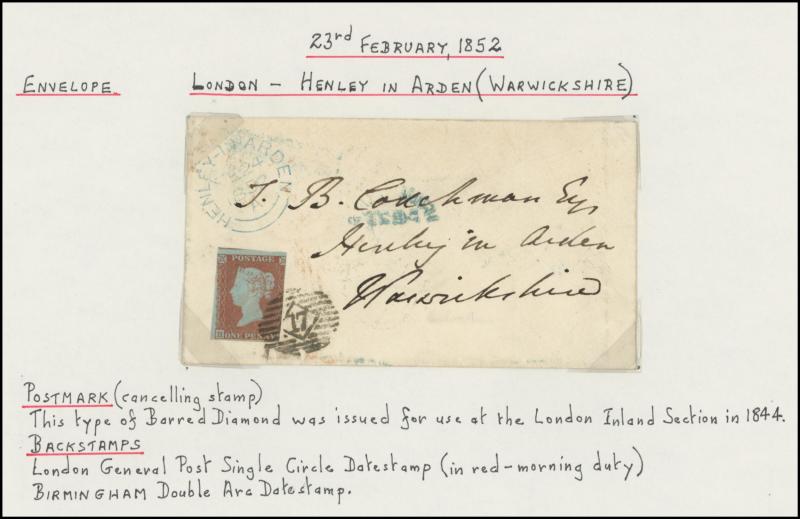 23rd FEBRUARY, 1852
ENVELOPE. LONDON – HENLEY IN ARDEN (WARWICKSHIRE)
HENLEY-IN-ARDEN
T. B. Couchman Esq
Henley in Arden
Warwickshire
POSTAGE
ONE PENNY
17
POSTMARK (cancelling stamp)
This type of Barred Diamond was issued for use at the London Inland Section in 1844.
BACKSTAMPS
London General Post Single Circle Datestamp (in red-morning duty)
BIRMINGHAM Double Arc Datestamp.